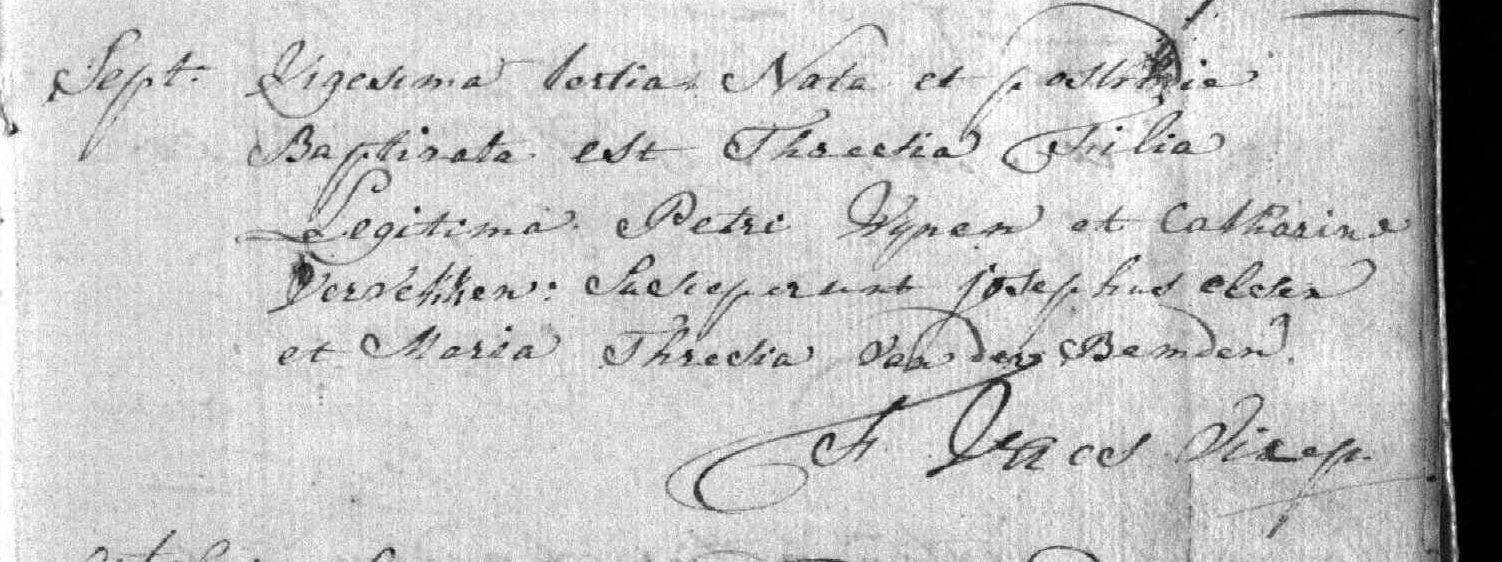 Sept. Vigesima tertia Nata et postridie
Baptizata est Theresia Filia
Legitima Petri Wynen et Catharinæ
Verrekken: Susceperunt josephus elsen
et Maria Thresia Van den Bemden.
F. Draes Vicep.